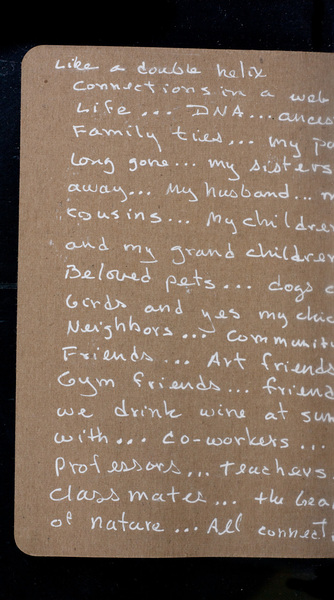 Like a double helix
Connections in a web
Life... DNA... ances
Family ties... my pa
Long gone... my sisters
away... My husband... m
cousins... My childre
and my grand children
Beloved pets... dogs c
Birds and yes my chic
Neighbors... Community
Friends... Art friends
Gym friends... friend
we drink wine at sun
with... co-workers...
Professors... Teachers.
Classmates... the bea
of nature... All connect